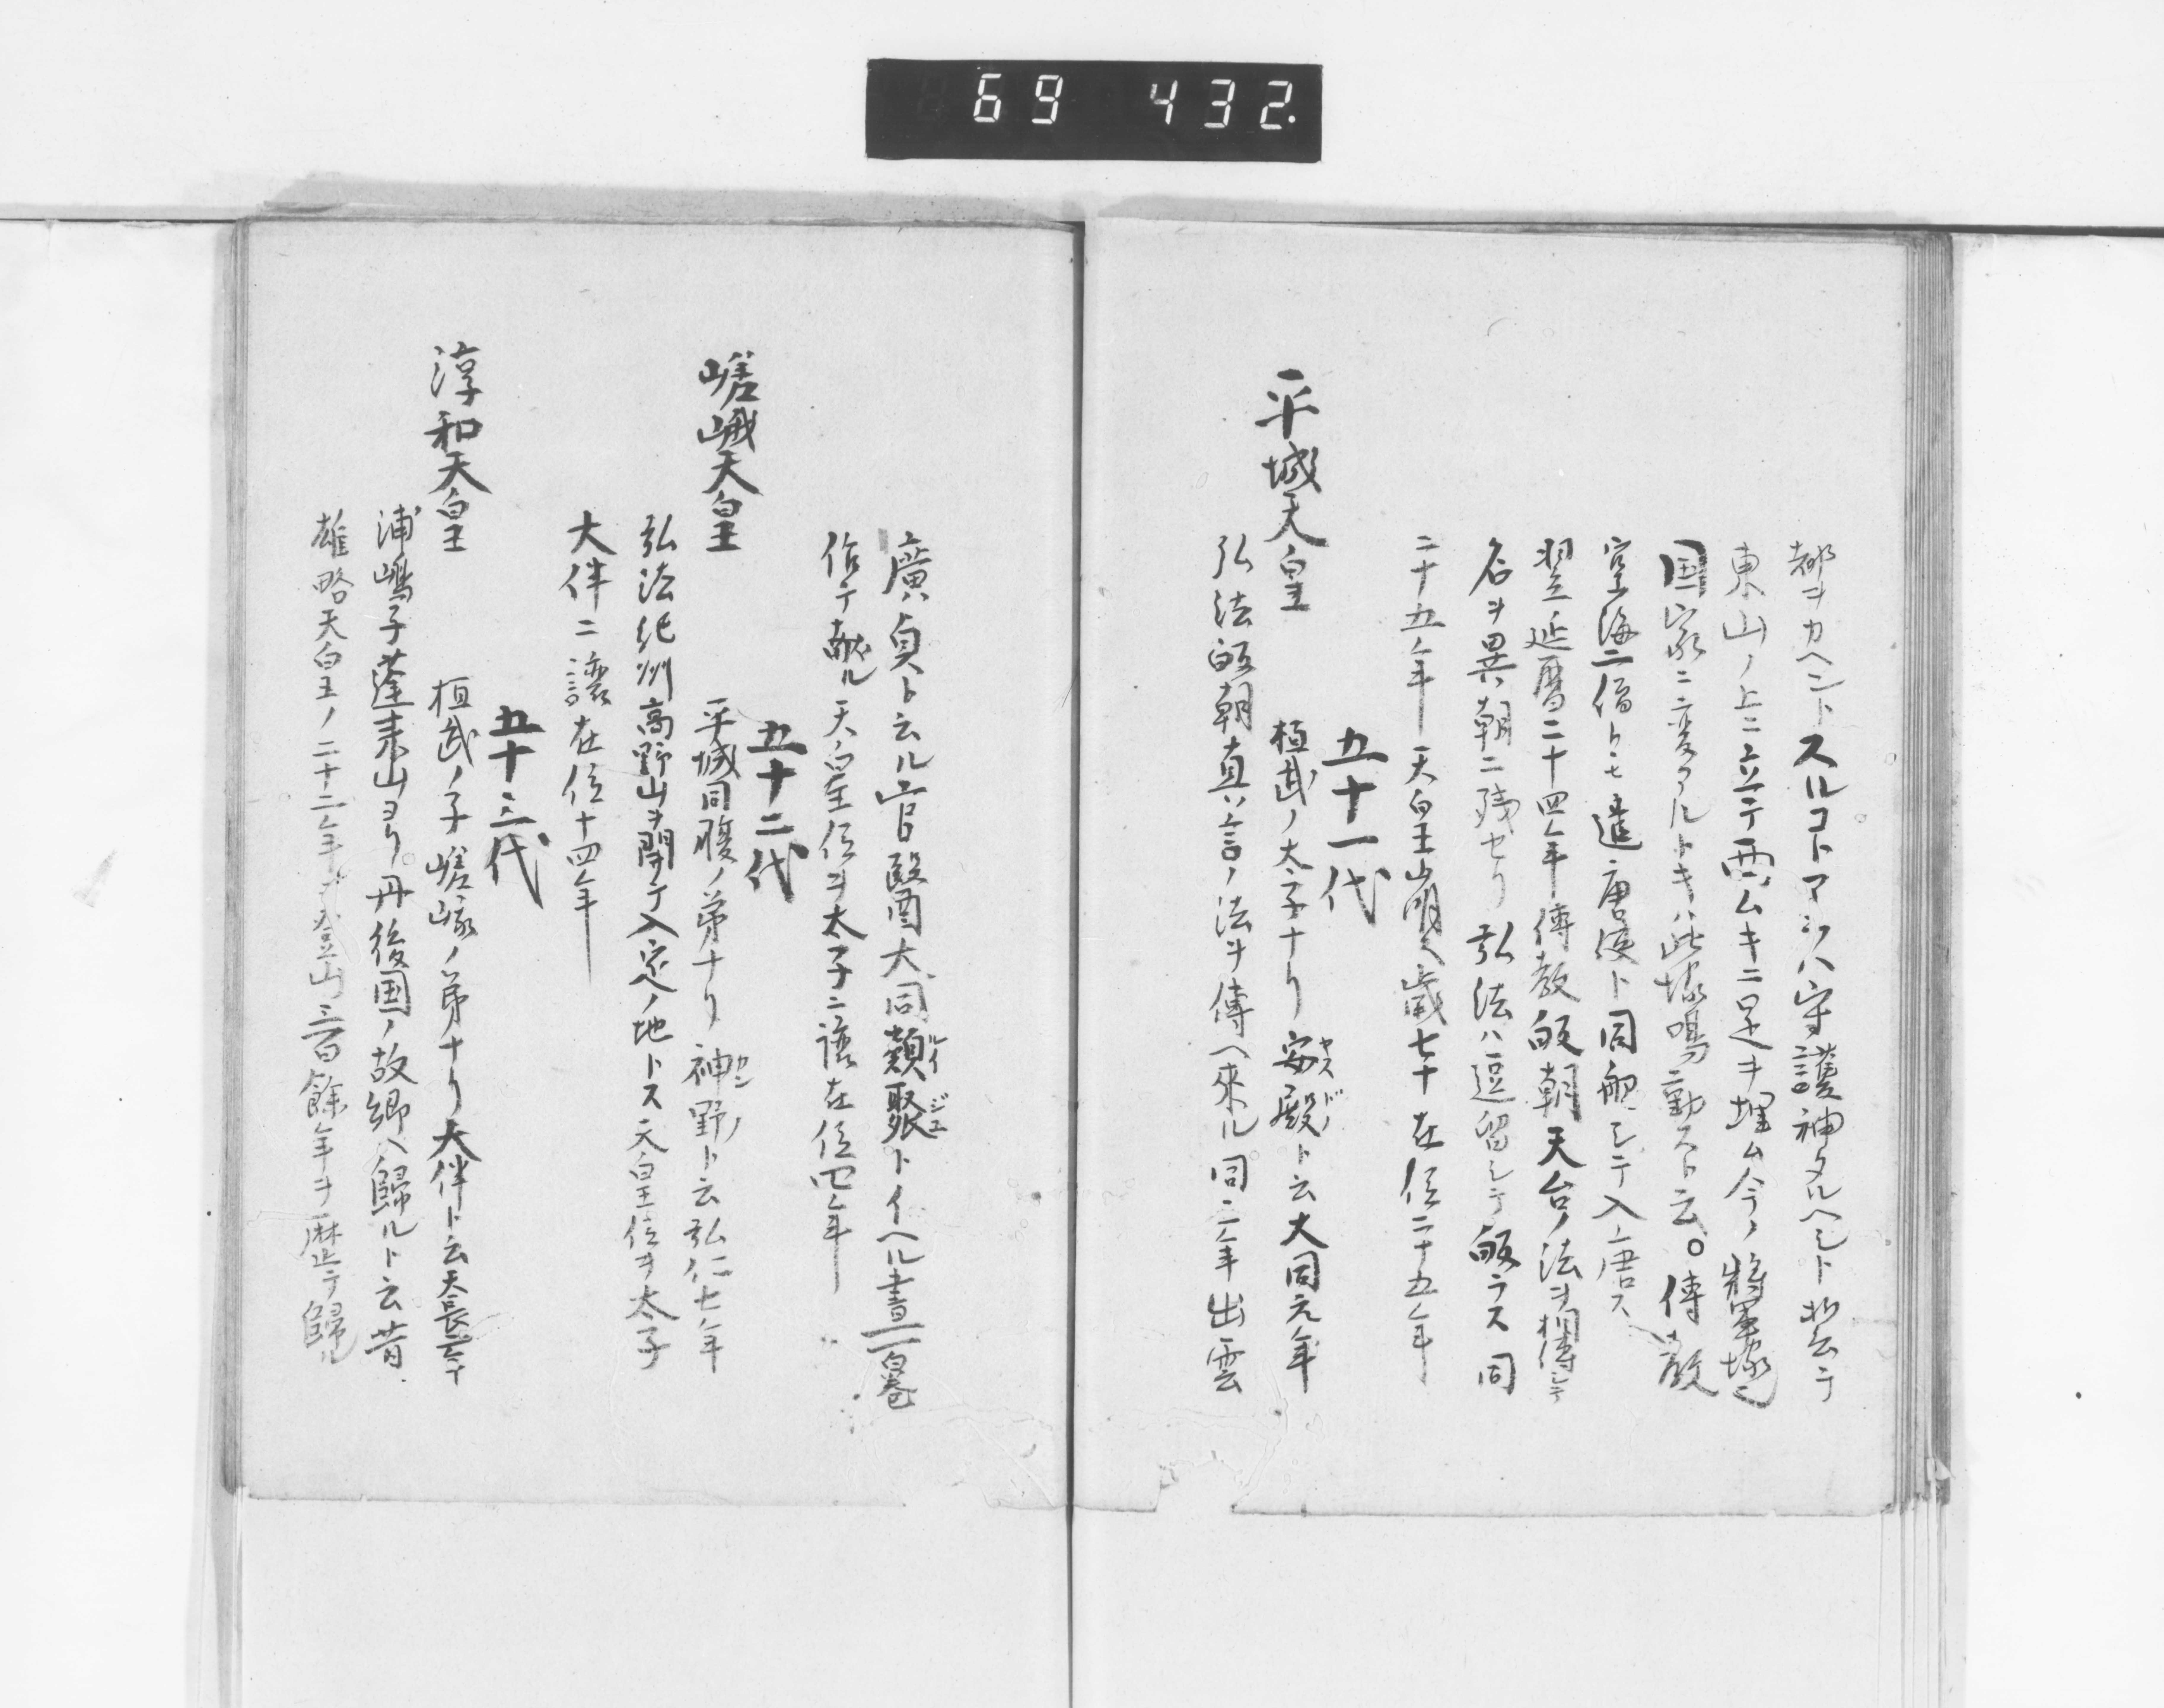 69 432.
都ヲカヘントスルコトアラハ守護神タルヘシト祝テ
東山ノ上ニ立テ西ムキニ是ヲ埋ム今ノ將軍塚也
国家ニ変アルトキハ此塚鳴動スト云。傳教
空海二僧トモ遣唐使ト同舩シテ入唐ス
翌延暦二十四年傳教皈朝天台ノ法ヲ相傳シテ
名ヲ異朝ニ残セリ弘法ハ逗留シテ皈ラス同
二十五年天皇崩ス歳七十在位二十五年
五十一代
平城天皇
桓武ノ太子ナリ安殿ト云大同元年
ヤス ドノ
弘法皈朝真言ノ法ヲ傳ヘ來ル同三年出雲
廣貞ト云ル官醫大同類聚トイヘル書一百卷
ルイ ジユ
作テ献ル天皇位ヲ太子ニ譲在位四年
五十二代
嵯峨天皇
平城同腹ノ弟ナリ神野ト云弘仁七年
カンノ
弘法紀州高野山ヲ開テ入定ノ地トス天皇位ヲ太子
大伴ニ譲在位十四年
五十三代
淳和天皇
桓武ノ子嵯峨ノ弟ナリ大伴ト云天長
浦嶋子蓬莱山ヨリ丹後国ノ故郷ヘ歸ルト云昔
雄略天皇ノ二十二年登山三百餘年ヲ歴テ歸ル